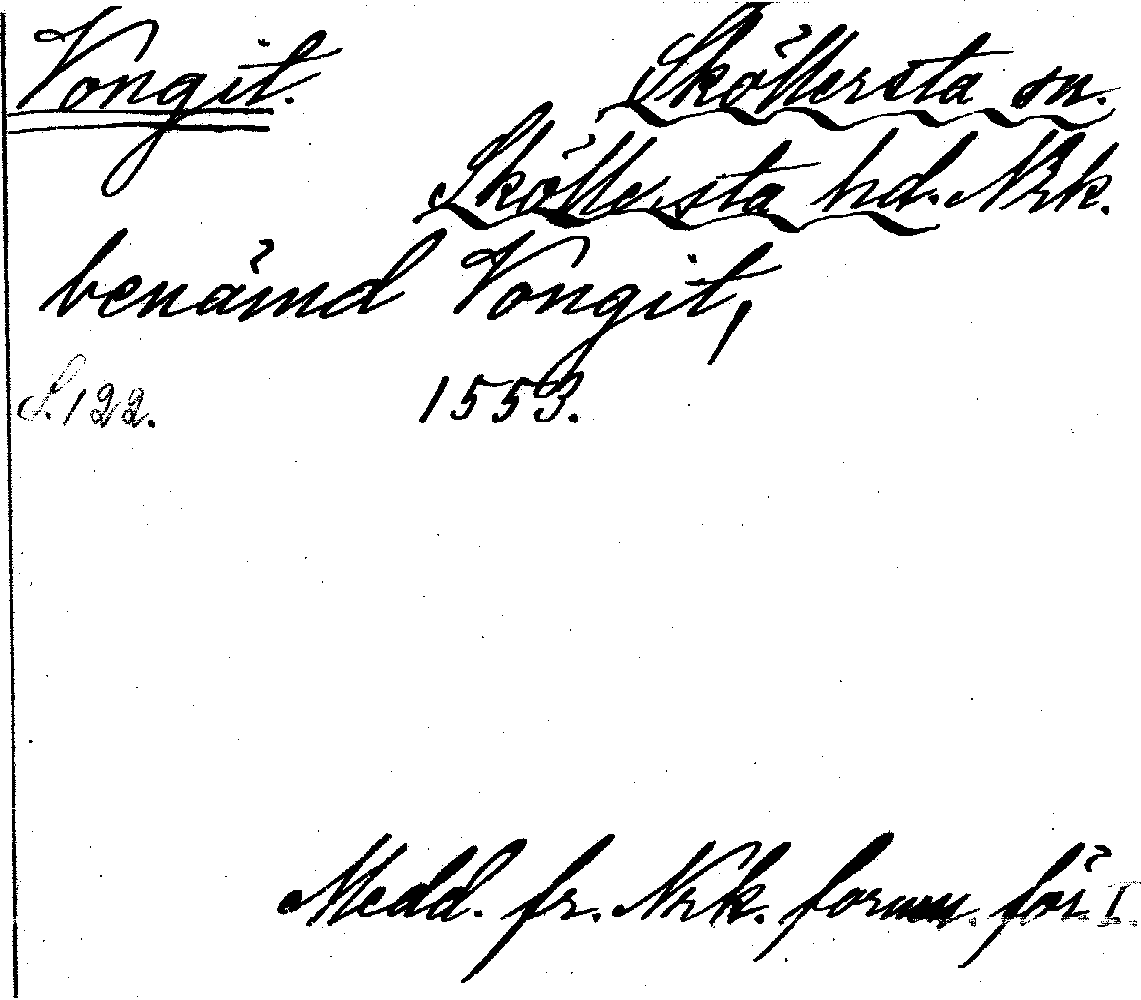 Vongit.
Sköllersta sn.
Sköllersta hd. Nrk.
benämd Vongit,
S. 122. 1553.
Medd. fr. Nrk. fornm. för. I.